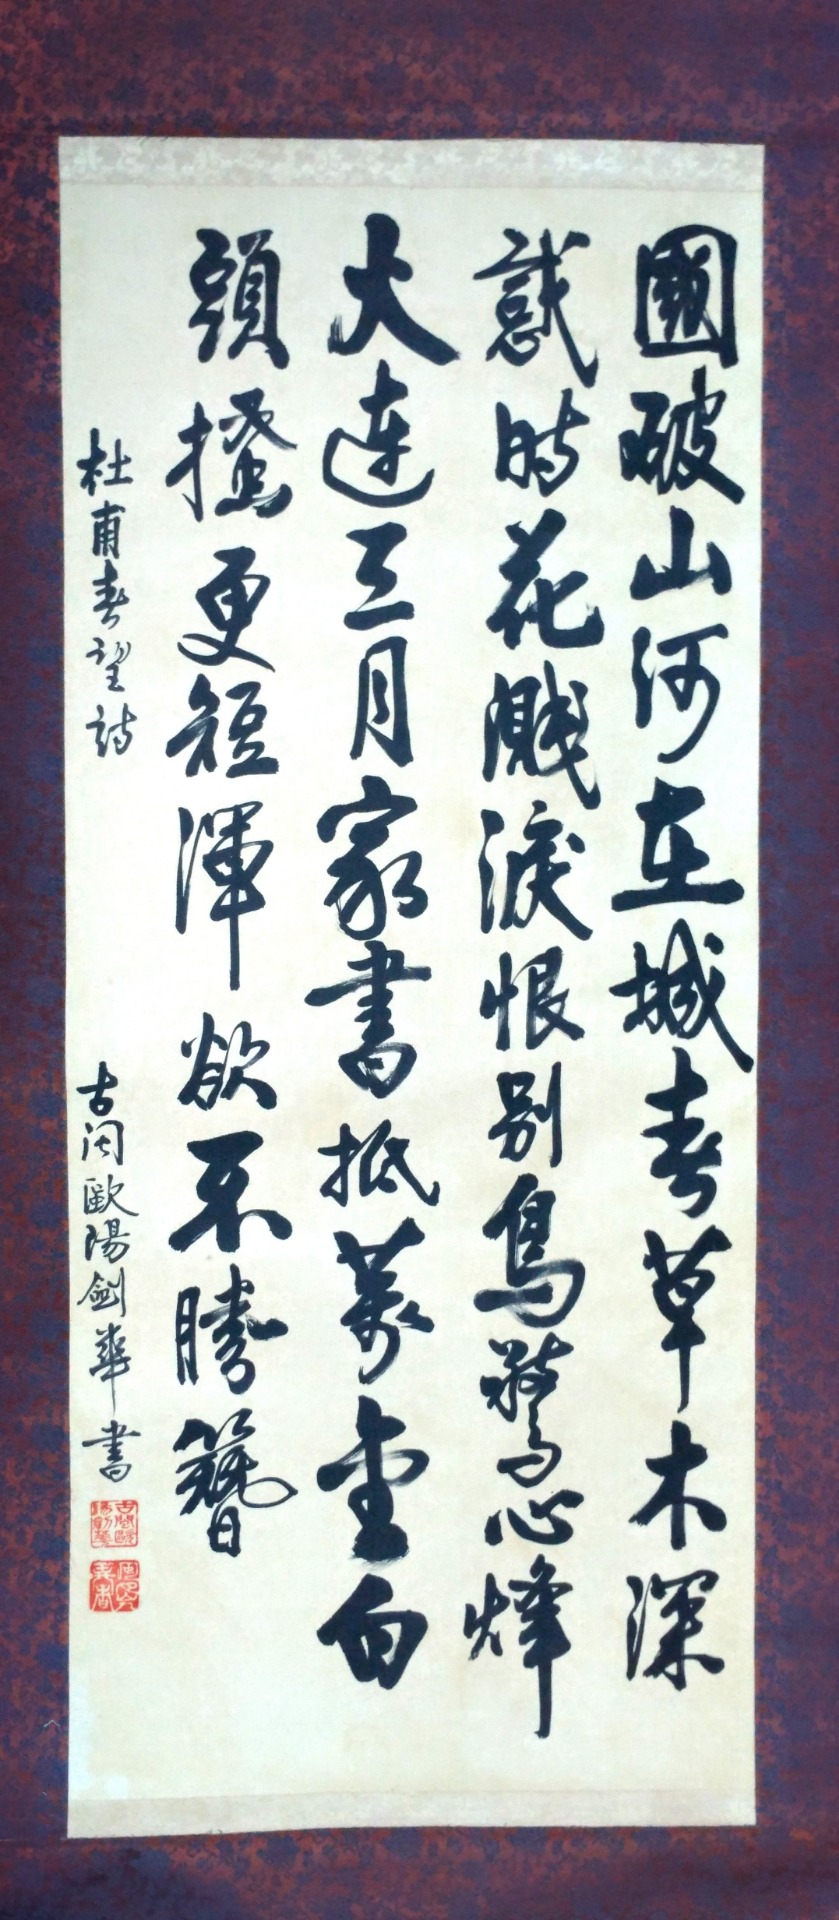 國破山河在城春草木深
感時花濺淚恨別鳥驚心烽
火連三月家書抵萬金白
頭搔更短渾欲不勝簪
杜甫春望詩
古閩歐陽劍華書